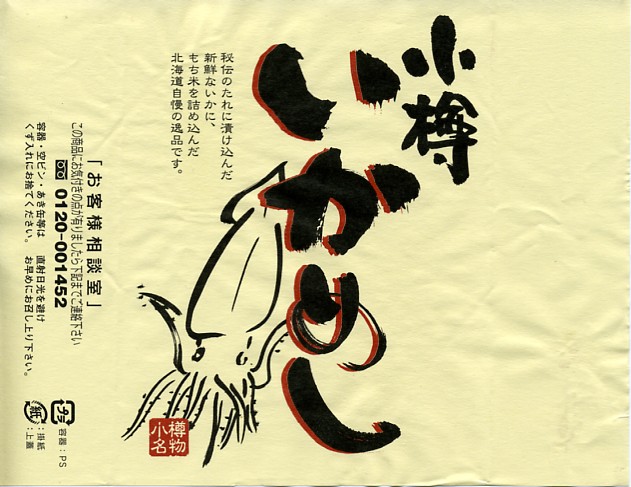 小樽
いかめし
秘伝のたれに漬け込んだ
新鮮ないかに、
もち米を詰め込んだ
北海道自慢の逸品です。
「お客様相談室」
この商品にお気付きの点が有りましたら下記までご連絡下さい
0120-001452
容器・空ビン・あき缶等は　直射日光を避け
くず入れにお捨てください。　お早めにお召し上り下さい。
樽物
小名
プラ
容器：PS
紙
：掛紙
：上蓋